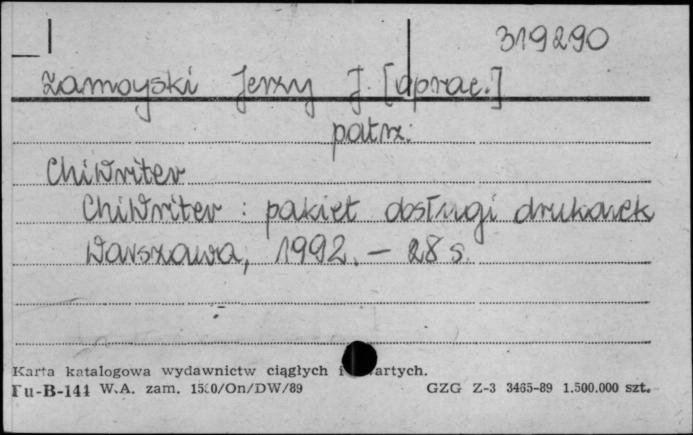 319290
Zamoyski Jerzy J. [oprac.]
patrz:
ChiWriter
ChiWriter : pakiet obsługi drukarek
Warszawa, 1992. — 28 s.
Karta katalogowa wydawnictw ciągłych i
Pu-B-144 W.A. zam. /On/DW/89 GZG Z-3 3465-89 1.500.000 szt.